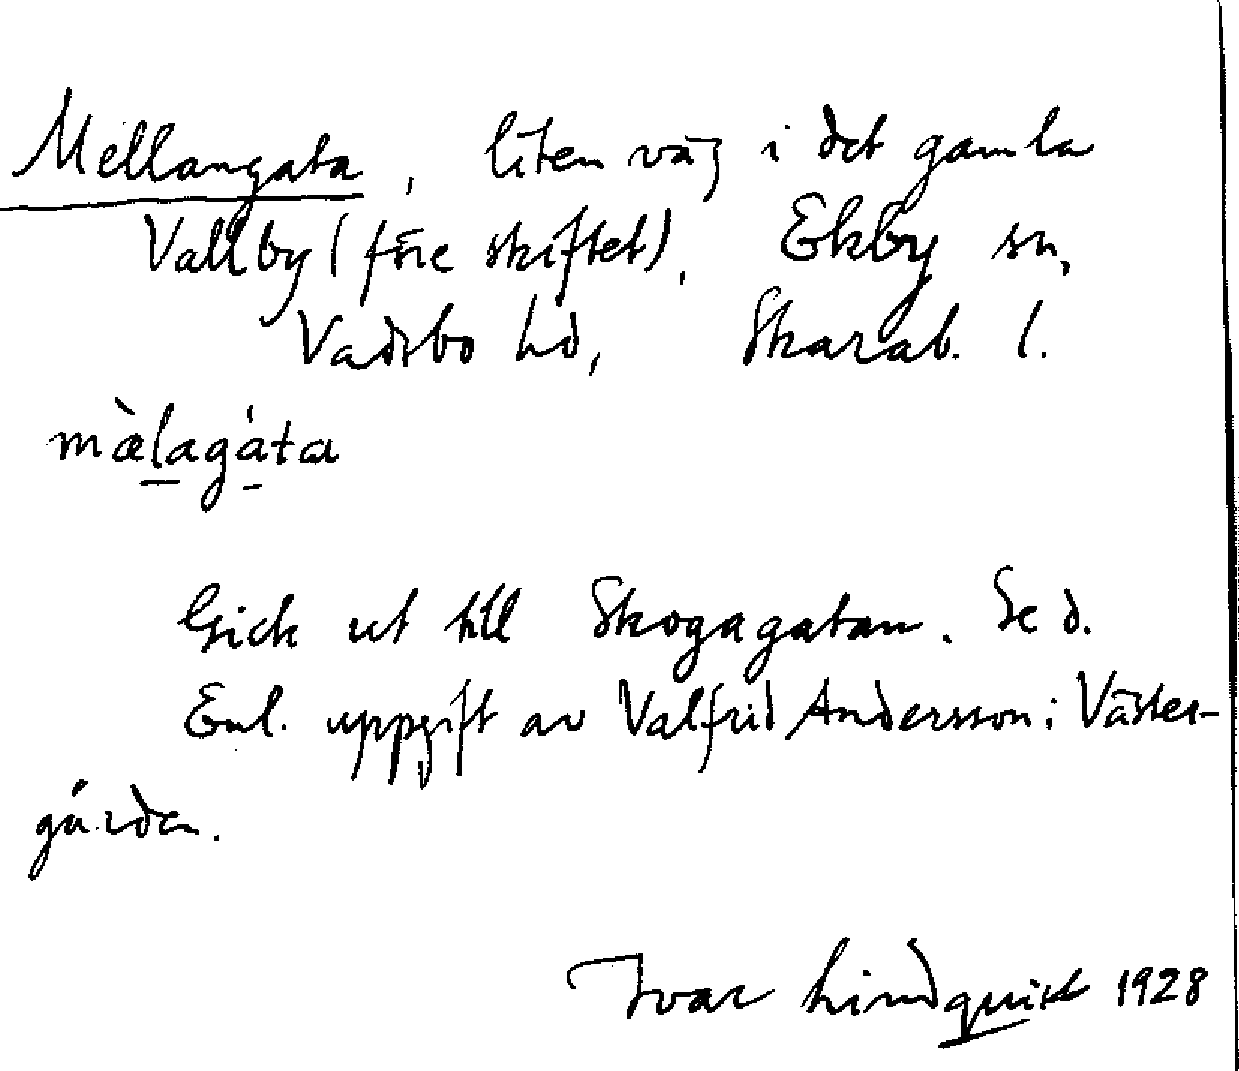 Mellangata, liten väg i det gamla
Vallby (före skiftet), Ekby sn,
Vadsbo hd, Skarab. l.
mæ̀lagáta
Gick ut till Skogagatan. Se d.
Enl. uppgift av Valfrid Andersson i Väster-
gården.
Ivar Lindquist 1928